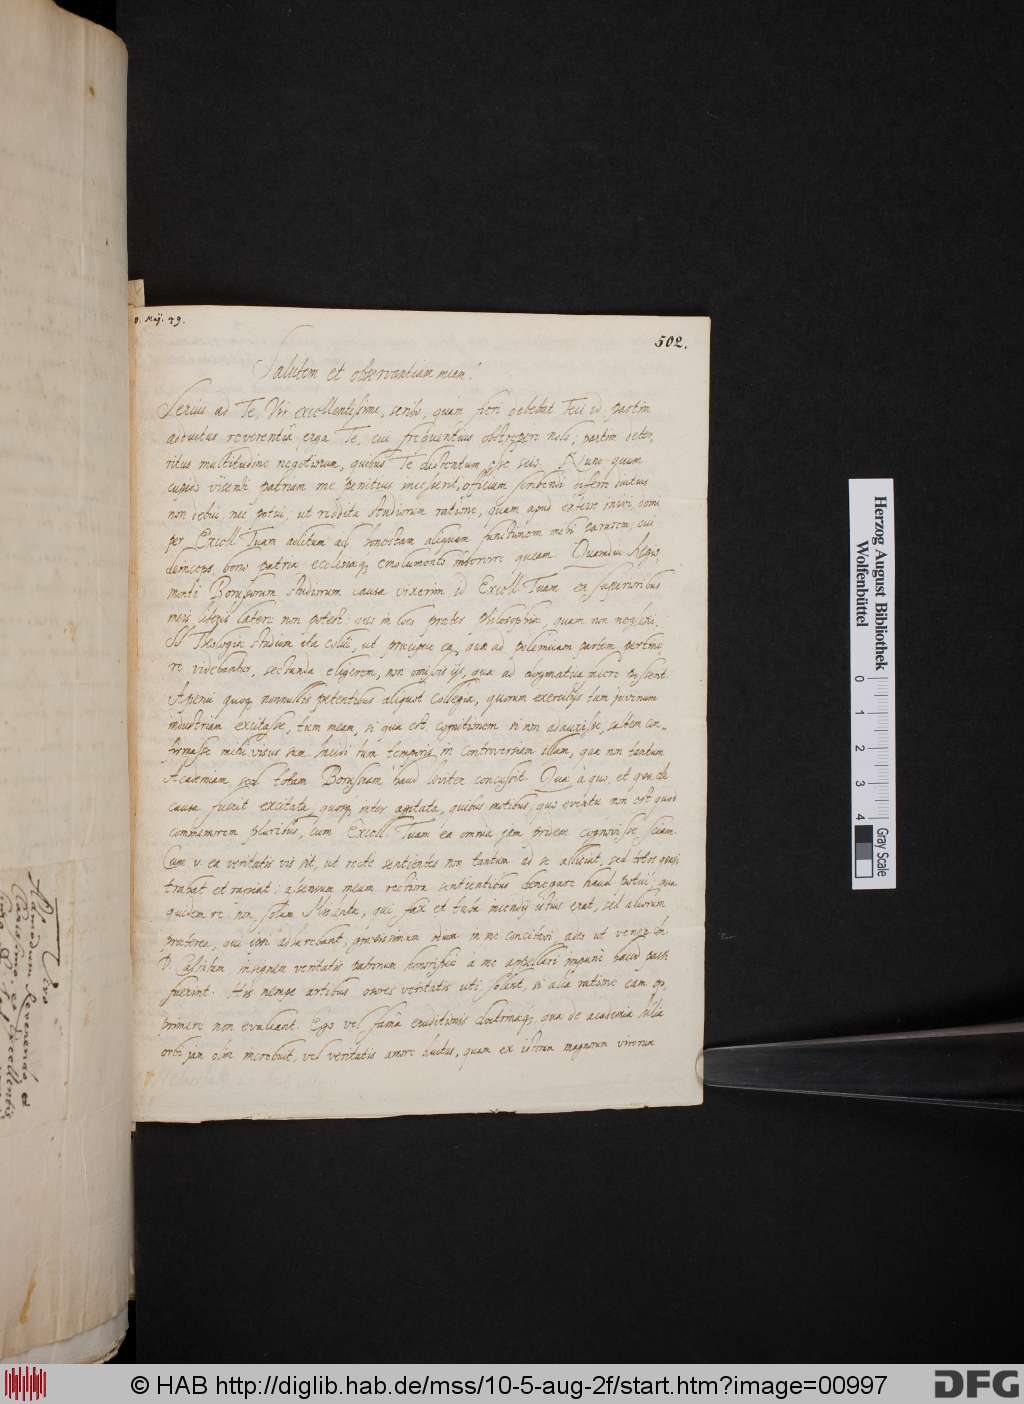 Maij. 49.
502.
Salutem et observantiam meam!
Serius ad Te, Vir excellentissime, scribo, quàm fieri debebat. Feci id partim
adductus reverentiâ erga Te, cui frequentius obstrepere nolui; partim deter,
ritus multitudine negotiorum, quibus Te distentum esse scio. Nunc quum
cupido visendi patriam me penitus incesserit, officium scribendi differri diutius
non debuit nec potuit, ut redditâ studiorum ratione, quam apud exteros inivi, domi
per Excell. Tuam aditum ad honestam aliquam functionem mihi paratum, cui
deinceps bono patriæ ecclesiæq, emolumento inservire queam. Quamdiu Regio,
monti Borussorum studiorum causa vixerim id Excell. Tuam ex superioribus
meis literis latere non potest: quo in loco præter philosophiæ, quam non neglexi,
SS. Theologiæ studium ita colui, ut præcipue ea, quæ ad polemicam partem pertine,
re videbantur, sectanda eligerem, non omissis iis, quæ ad dogmaticam facere possent.
Aperui quoq, nonnullis petentibus aliquot Collegia, quorum exercitijs tum juvenum
industriam excitasse, tum meam, si qua est cognitionem si non adauxisse, saltem con-
firmasse mihi visus sum. Incidi tum temporis in controversiam illam, quæ non tantum
Academiam, sed totam Borussiam haud leviter concussit. Quæ à quo, et qua de
causa fuerit excitata, quoq, inter agitata, quibus motibus, quo eventu non est quod
commemorem pluribus, cum Excell. Tuam ea omnia jam pridem cognovisse sciam.
Cum v. ea veritatis vis sit, ut recte sentientes non tantum ad se alliciat, sed totos quasi
trahat et rapiat: assensum meum rectiora sentientibus denegare haud potui; qua
quidem re non solum Mislentæ, qui fax et tuba incendij istius erat, sed aliorum
præterea, qui ipsi adhærebant, gravissimum odium in me concitavi, adeo ut
D. Calixtum insignem veritatis patronum honorifice à me appellari impune haud passi
fuerint. His nempe artibus osores veritatis uti solent, si aliâ ratione eam op,
primere non evaleant. Ego vel famâ eruditionis doctrinæq, quæ de academia Julia
orbi jam olim increbuit, vel veritatis amore ductus, quam ex istorum magnorum virorum
Viro
Admodum Reverendo, et
Clarissimo, et Excellentiss.
Herzog August Bibliothek
Wolfenbüttel
0 1 2 3 4
Gray Scale
© HAB http://diglib.hab.de/mss/10-5-aug-2f/start.htm?image=00997
DFG